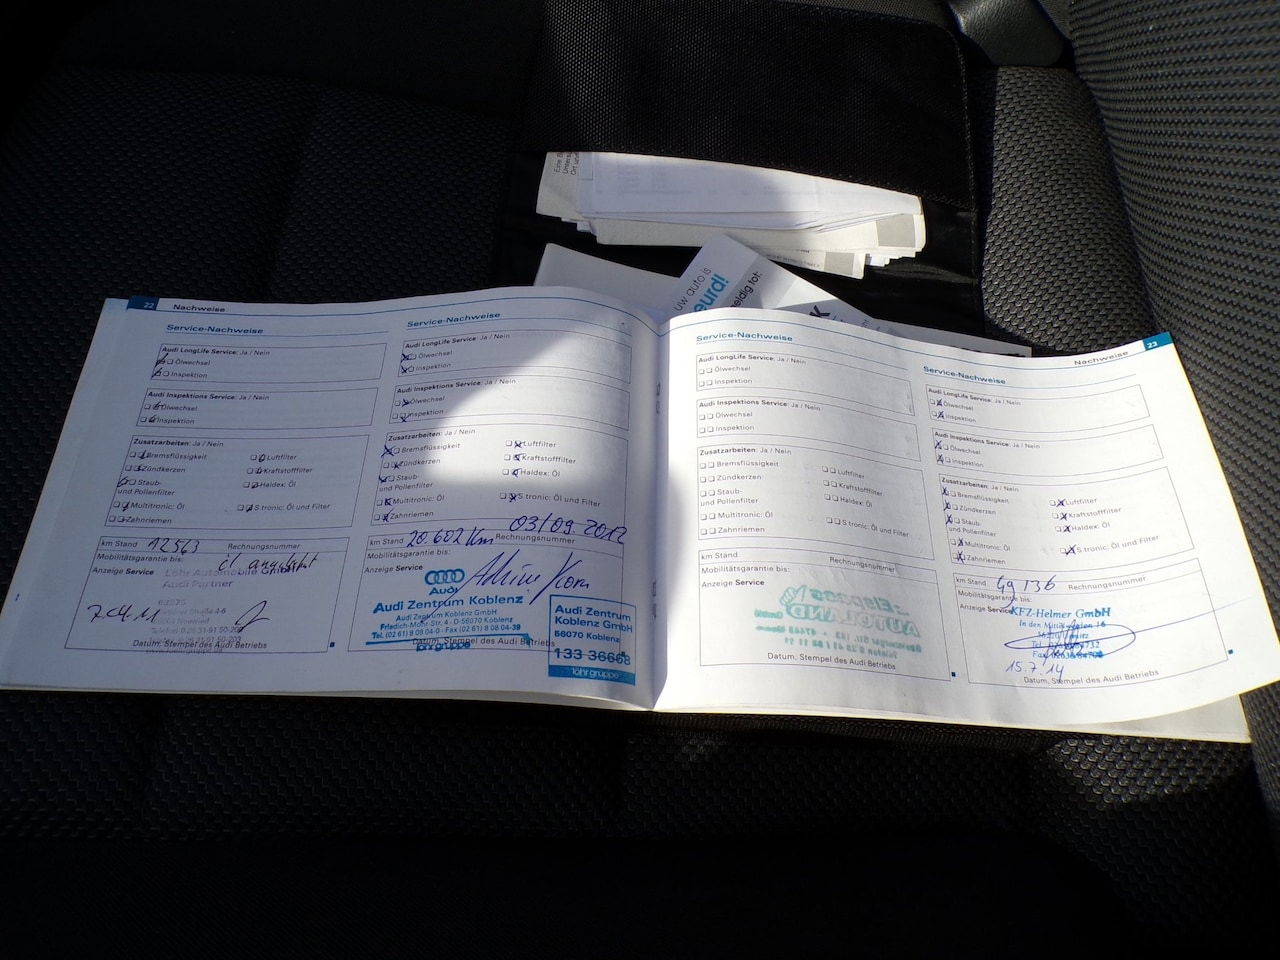 Eine B
uw auto is
eurd!
eldig tot:
22 Nachweise
Service-Nachweise
Audi LongLife Service: Ja / Nein
Ölwechsel
Inspektion
Audi Inspektions Service: Ja / Nein
Ölwechsel
Inspektion
Zusatzarbeiten: Ja / Nein
Bremsflüssigkeit Luftfilter
Zündkerzen Kraftstofffilter
Staub- Haldex: Öl
und Pollenfilter
Multitronic: Öl S tronic: Öl und Filter
Zahnriemen
km Stand 12563 Rechnungsnummer
Mobilitätsgarantie bis:
Anzeige Service
Löhr Automobile
Audi Partner
Datum, Stempel des Audi Betriebs
Service-Nachweise
Audi LongLife Service: Ja / Nein
Ölwechsel
Inspektion
Audi Inspektions Service: Ja / Nein
Ölwechsel
Inspektion
Zusatzarbeiten: Ja / Nein
Bremsflüssigkeit Luftfilter
Zündkerzen Kraftstofffilter
Staub- Haldex: Öl
und Pollenfilter
Multitronic: Öl S tronic: Öl und Filter
Zahnriemen
03/09.2012
km Stand 20.602 Km Rechnungsnummer
Mobilitätsgarantie bis:
Anzeige Service
Audi
Audi Zentrum Koblenz
Audi Zentrum Koblenz GmbH
Friedrich-Mohr-Str. 4 - D-56070 Koblenz
Tel. (02 61) 8 08 04-0 - Fax (02 61) 8 08 04-39
löhrgruppe
Datum, Stempel des Audi Betriebs
Audi Zentrum
Koblenz GmbH
56070 Koblenz
133 36668
löhrgruppe
Service-Nachweise
Audi LongLife Service: Ja / Nein
Ölwechsel
Inspektion
Audi Inspektions Service: Ja / Nein
Ölwechsel
Inspektion
Zusatzarbeiten: Ja / Nein
Bremsflüssigkeit Luftfilter
Zündkerzen Kraftstofffilter
Staub- Haldex: Öl
und Pollenfilter
Multitronic: Öl S tronic: Öl und Filter
Zahnriemen
km Stand Rechnungsnummer
Mobilitätsgarantie bis:
Anzeige Service
AUTOLAND
Datum, Stempel des Audi Betriebs
Nachweise 23
Service-Nachweise
Audi LongLife Service: Ja / Nein
Ölwechsel
Inspektion
Audi Inspektions Service: Ja / Nein
Ölwechsel
Inspektion
Zusatzarbeiten: Ja / Nein
Bremsflüssigkeit Luftfilter
Zündkerzen Kraftstofffilter
Staub- Haldex: Öl
und Pollenfilter
Multitronic: Öl S tronic: Öl und Filter
Zahnriemen
km Stand 49136 Rechnungsnummer
Mobilitätsgarantie bis:
Anzeige Service
KFZ-Helmer GmbH
15.7.14
Datum, Stempel des Audi Betriebs